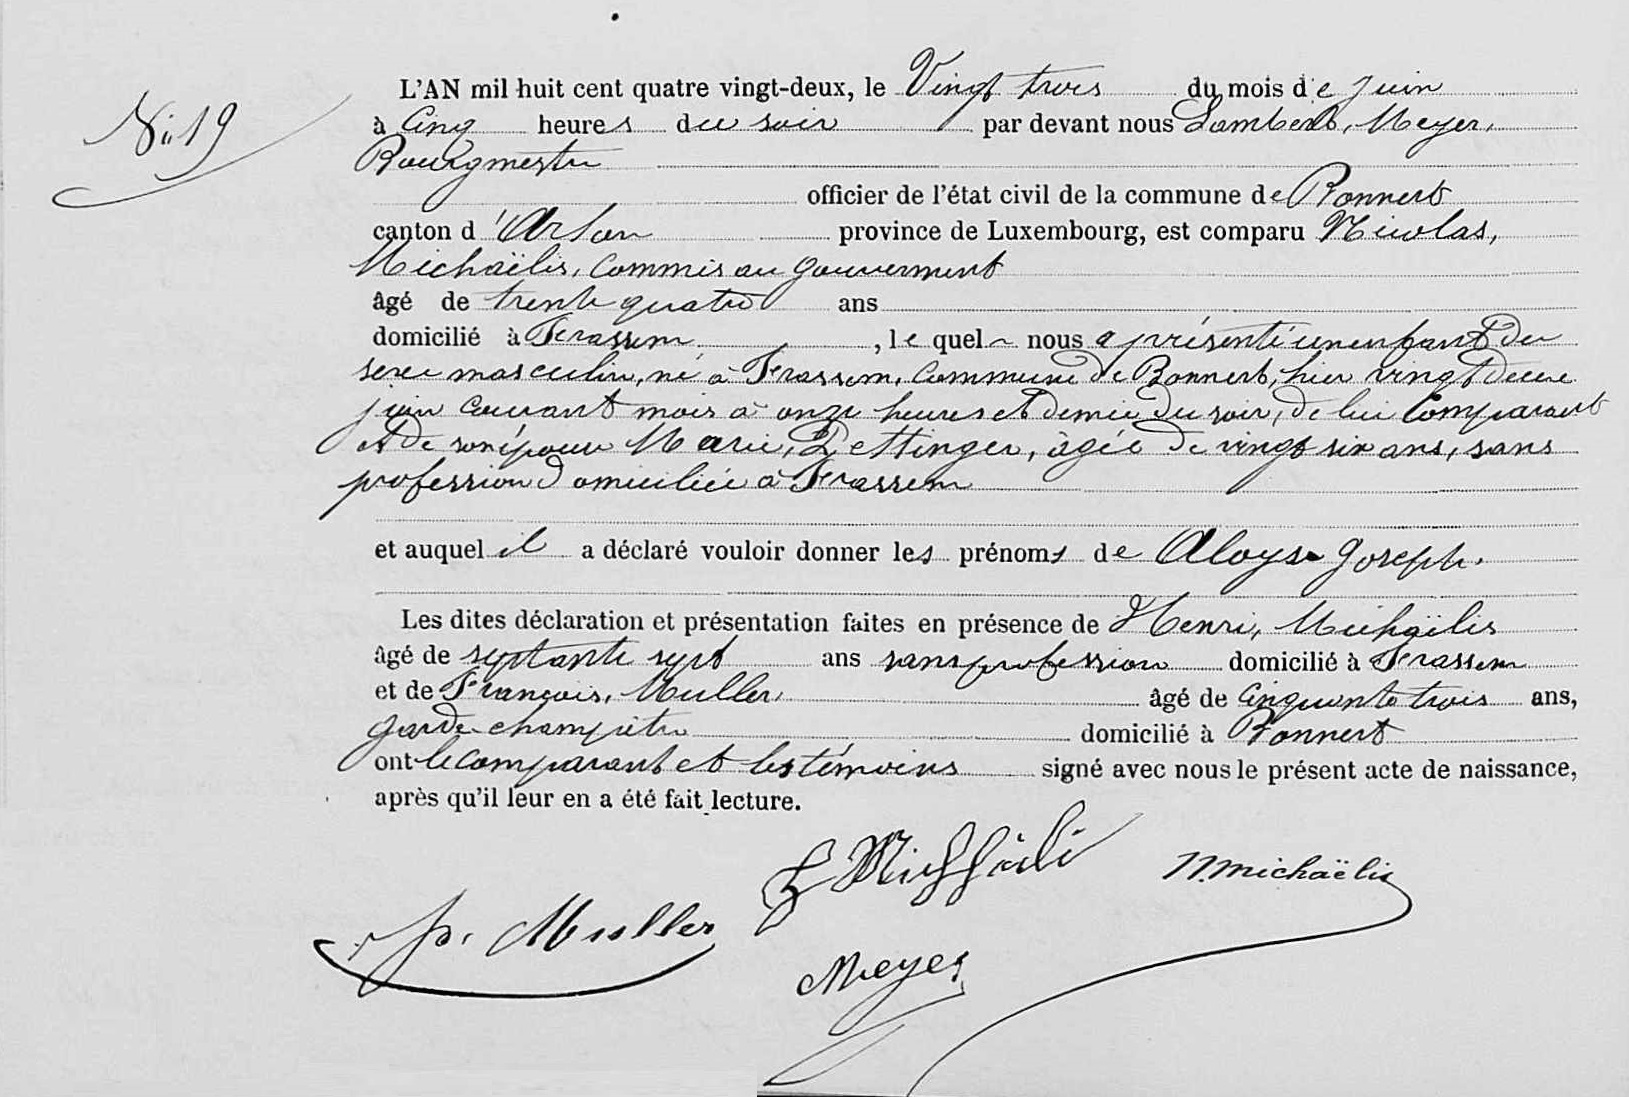 N° 19
L'AN mil huit cent quatre vingt-deux, le Vingt trois du mois de juin
à Cinq heures du soir par devant nous Lambert, Meyer,
Bourgmestre
officier de l'état civil de la commune de Bonnert
canton d'Arlon province de Luxembourg, est comparu Nicolas,
Michaëlis, Commis au gouverment
âgé de trente quatre ans
domicilié à Frassem, le quel nous a présenté un enfant du
sexe masculin, né à Frassem, Commune de Bonnert, hier vingt deux
juin courant mois à onze heures et demie du soir, de lui Comparant
et de son épouse Marie, Dettinger, âgée de vingt six ans, sans
profession Domiciliée à Frassem
et auquel il a déclaré vouloir donner les prénoms de Aloyse Joseph.
Les dites déclaration et présentation faites en présence de Henri, Michaëlis
âgé de septante sept ans sans profession domicilié à Frassem
et de François, Muller, âgé de Cinquante trois ans,
garde-champêtre domicilié à Bonnert
ont le Comparant et les témoins signé avec nous le présent acte de naissance,
après qu'il leur en a été fait lecture.
N. Michaëlis
Muller
Meyer